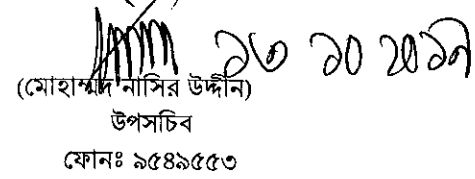 ১৩ ১০ ২০১৭
(মোহাম্মদ নাসির উদ্দীন)
উপসচিব
ফোনঃ ৯৫৪৯৫৫৩